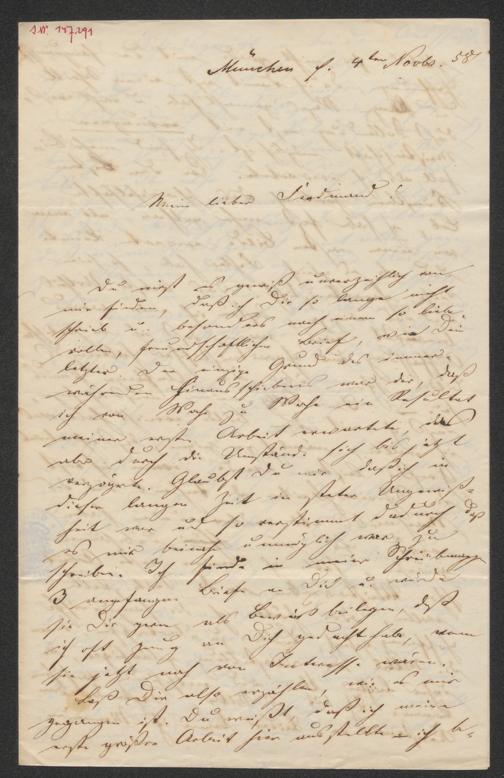 I.N. 197.291
München d. 4ten Novbr. 58
Mein lieber Ferdinand!
Du wirst es gewiß unverzeihlich von
mir finden, daß ich Dir so lange nicht
schrieb u. besonders nach einem so liebe-
vollen, freundschaftlichen Brief, wie Dein
letzter. Der einzige Grund des immer-
währenden Hinausschiebens war der, daß
ich von Woche zu Woche ein Resultat
meiner ersten Arbeit erwartete, das
aber durch die Umstände sich bis jetzt
verzögerte. Glaubst Du mir, daß ich in
dieser langen Zeit in steter Ungewiß-
heit war und so verstimmt dadurch, daß
es mir beinahe unmöglich war, zu
schreiben. Ich finde in meiner Schreibmappe
3 angefangene Briefe an Dich u. würde
sie Dir gern als Beweiß beilegen, daß
ich oft genug an Dich gedacht habe, wenn
sie jetzt noch von Interesse wären.
Laß Dir also erzählen, wie es mir
gegangen ist. Du weißt, daß ich meine
erste größere Arbeit hier ausstellte – ich be-